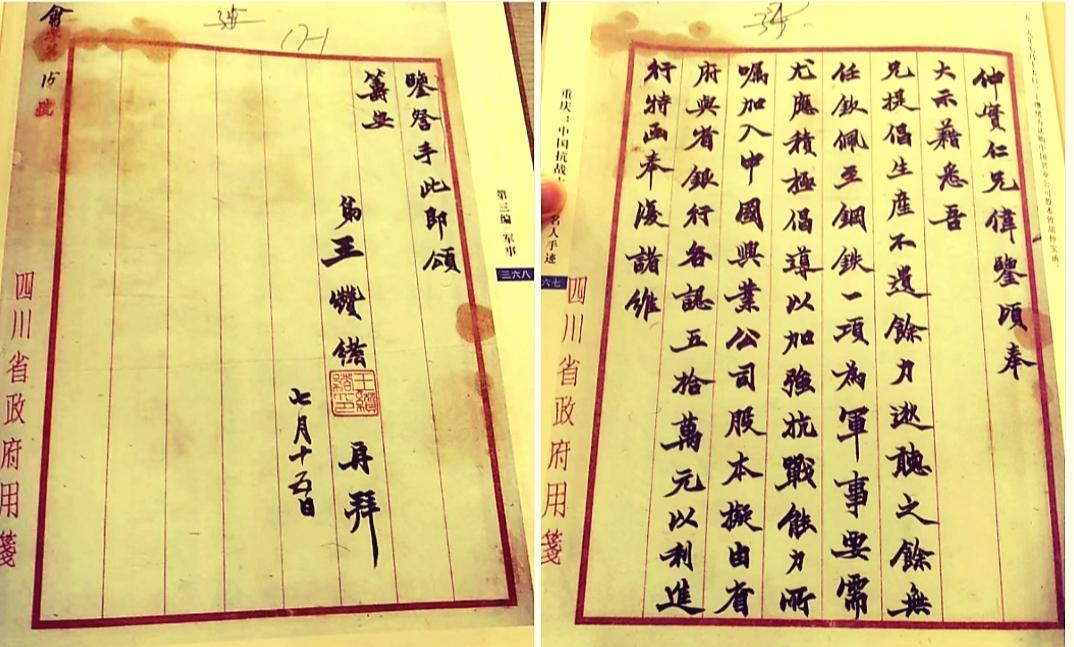 仲實仁兄偉鑒頃奉
大示藉悉吾
兄提倡生產不遺餘力逖聽之餘無
任欽佩至鋼鉄一項為軍事要需
尤應積極倡導以加強抗戰能力所
囑加入中國興業公司股本擬由省
府與省銀行各認五拾萬元以利進
行特函奉復諸維
四川省政府用箋
重庆：中国抗战
名人手迹
六七
第三编 军事
三六八
鑒詧手此即頌
籌安
弟王纘緒 再拜
王纘緒印
七月十五日
四川省政府用箋
15 號